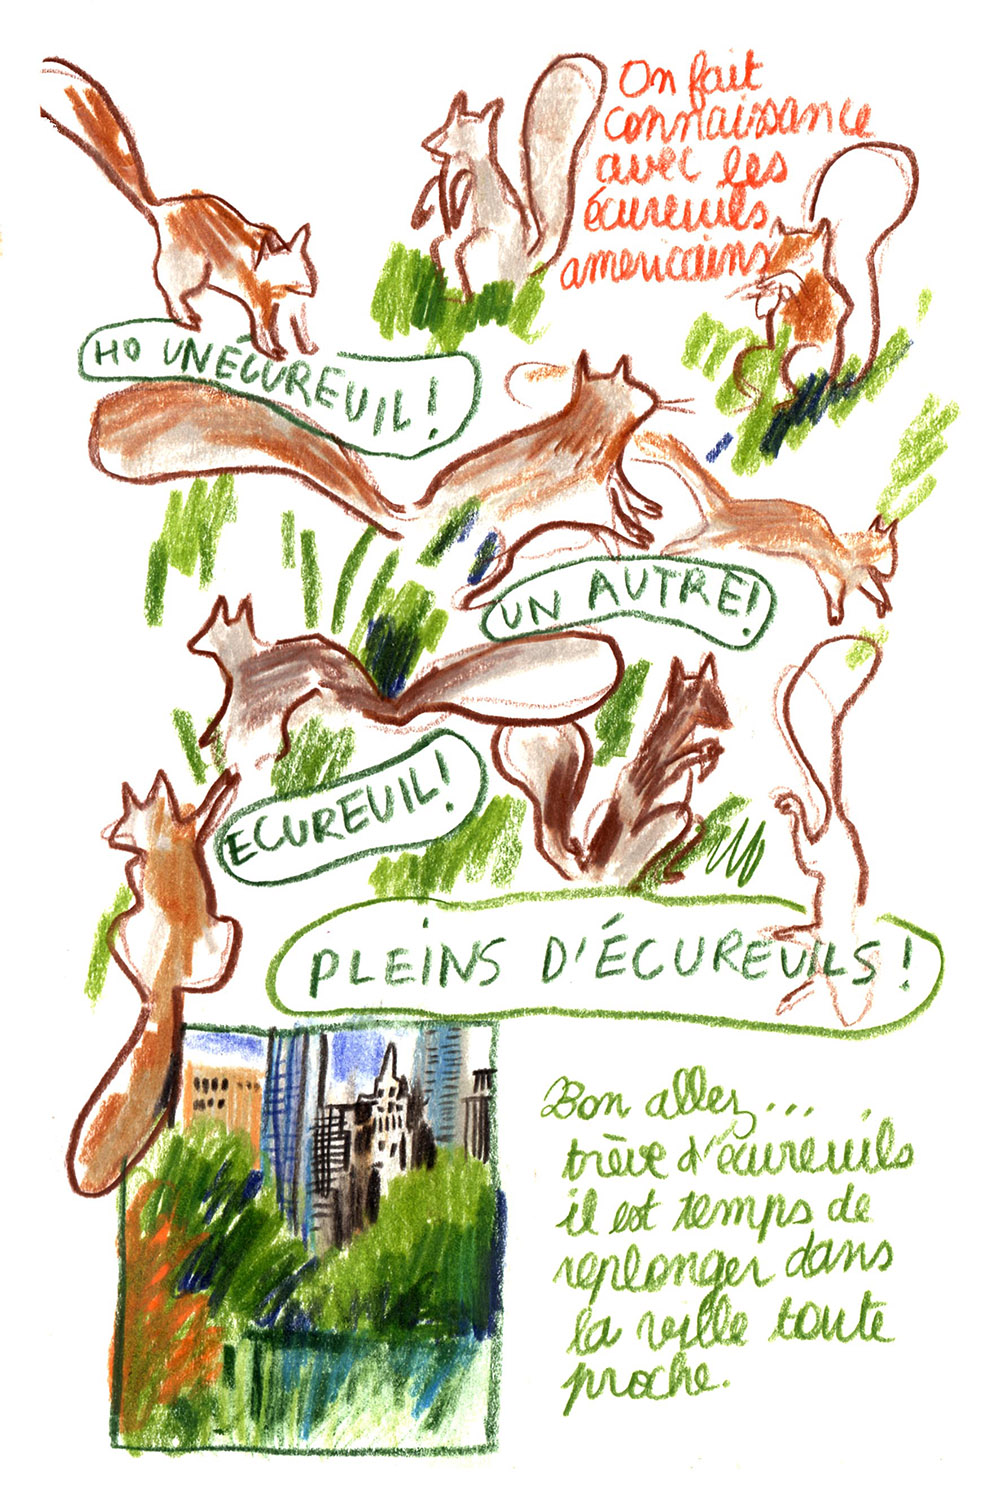 On fait
connaissance
avec les
écureuils
americains
HO UN ÉCUREUIL !
UN AUTRE !
ECUREUIL !
PLEINS D'ÉCUREUILS !
Bon allez...
trève d'écureuils
il est temps de
replonger dans
la ville toute
proche.